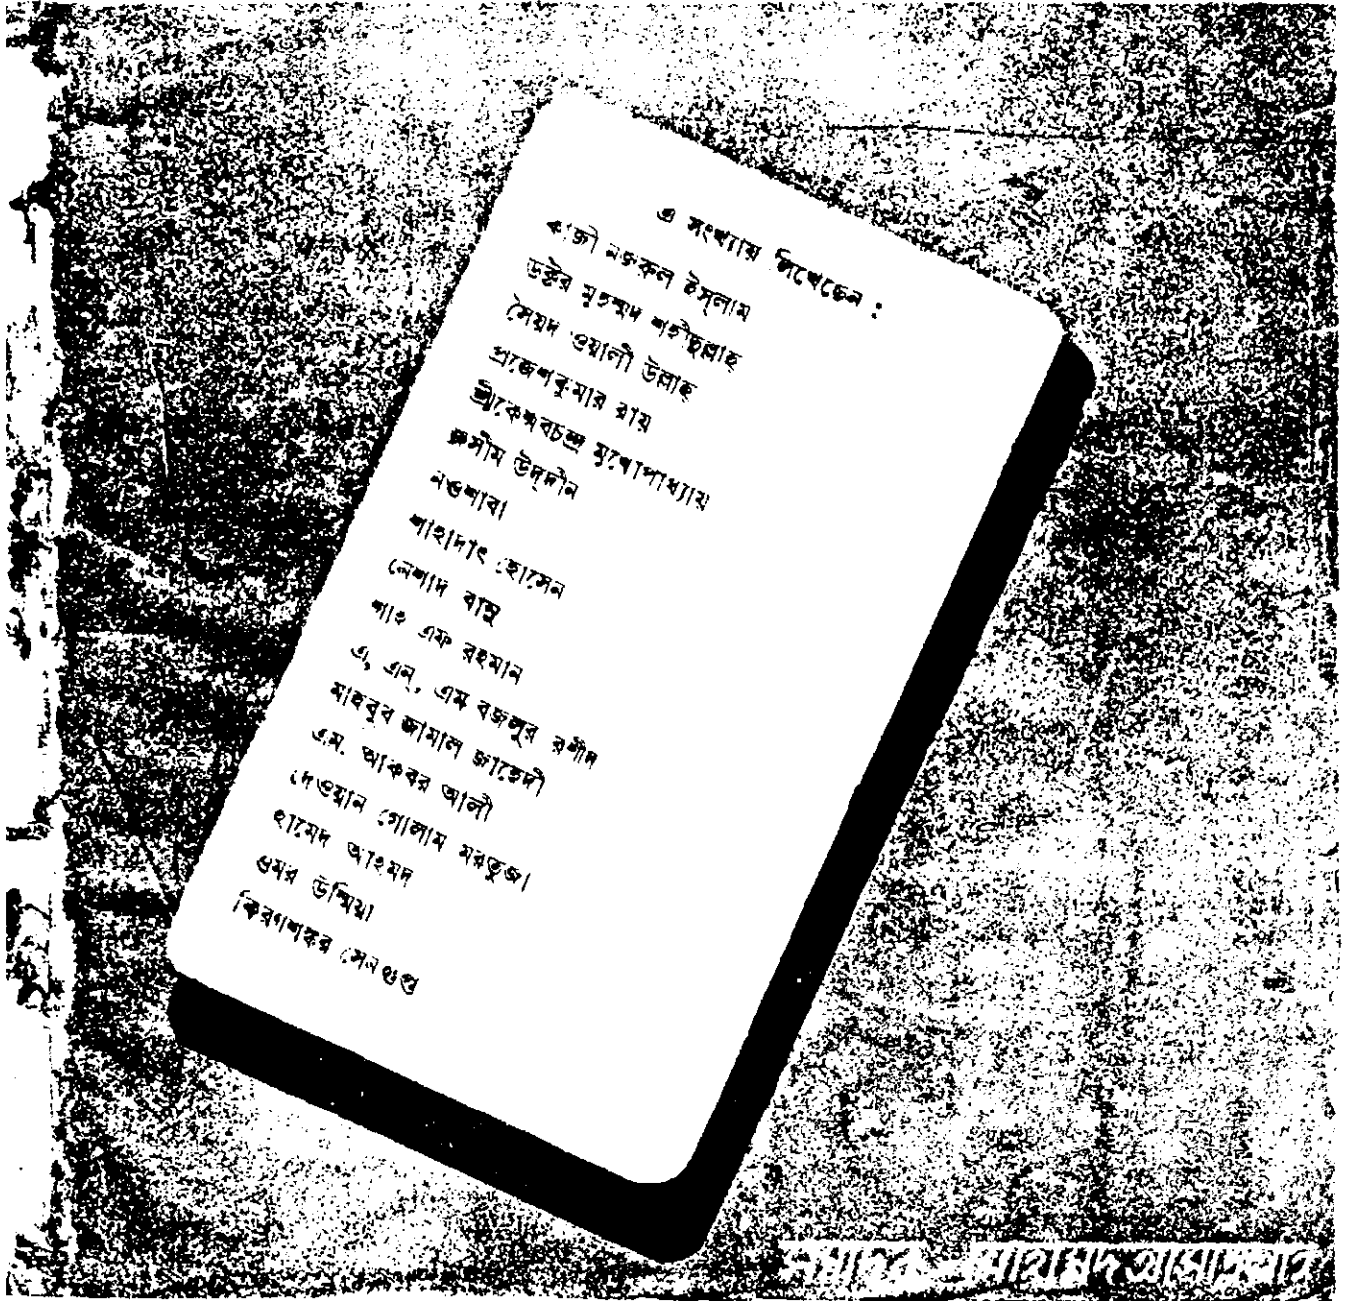 এ সংখ্যায় লিখেছেন :
কাজী নজরুল ইস্‌লাম
ডক্টর মুহম্মদ শহীদুল্লাহ্
সৈয়দ ওয়ালী উল্লাহ্
প্রজেশকুমার রায়
শ্রীকেশবচন্দ্র মুখোপাধ্যায়
জসীম উদ্‌দীন
নওশাবা
শাহাদাৎ হোসেন
লেশাদ বানু
শাহ এফ রহমান
এ, এন্, এম বজলুর রশীদ
মাহবুব জামাল জাহেদী
এম. আকবর আলী
দেওয়ান গোলাম মরতুজা
হামেদ আহমদ
ওমর উম্মিয়া
কিরণশঙ্কর সেনগুপ্ত